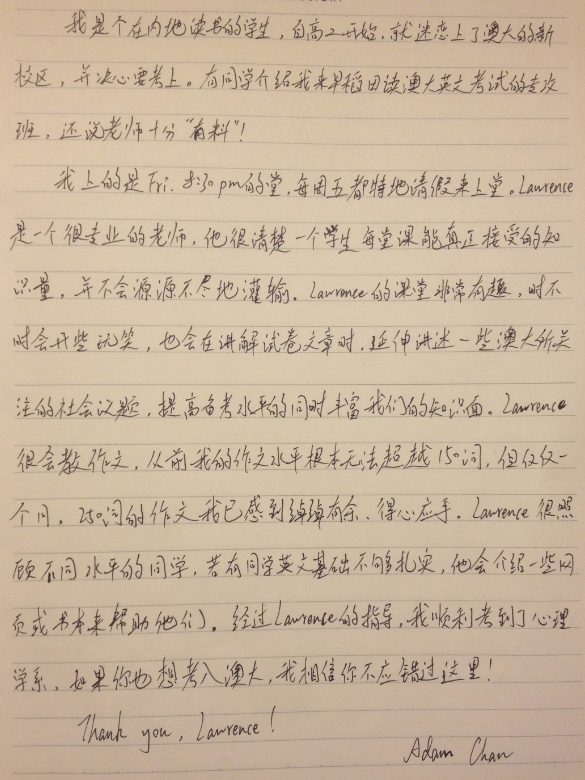 我是个在内地读书的学生，自高二开始，就迷恋上了澳大的新
校区，并决心要考上。有同学介绍我来早稻田读澳大英文考试的专攻
班，还说老师十分“有料”！
我上的是Fri. 8:30pm的堂，每周五都特地请假来上堂。Lawrence
是一个很专业的老师，他很清楚一个学生每堂课能真正接受的知
识量，并不会源源不尽地灌输。Lawrence的课堂非常有趣，时不
时会开些玩笑，也会在讲解试卷文章时，延伸讲述一些澳大所关
注的社会议题，提高备考水平的同时丰富我们的知识面。Lawrence
很会教作文，从前我的作文水平根本无法超越150词，但仅仅一
个月，250词的作文我已感到绰绰有余、得心应手。Lawrence很照
顾不同水平的同学，若有同学英文基础不够扎实，他会介绍一些网
页或书本来帮助他们。经过Lawrence的指导，我顺利考到了心理
学系，如果你也想考入澳大，我相信你不应错过这里！
Thank you, Lawrence!
Adam Chan